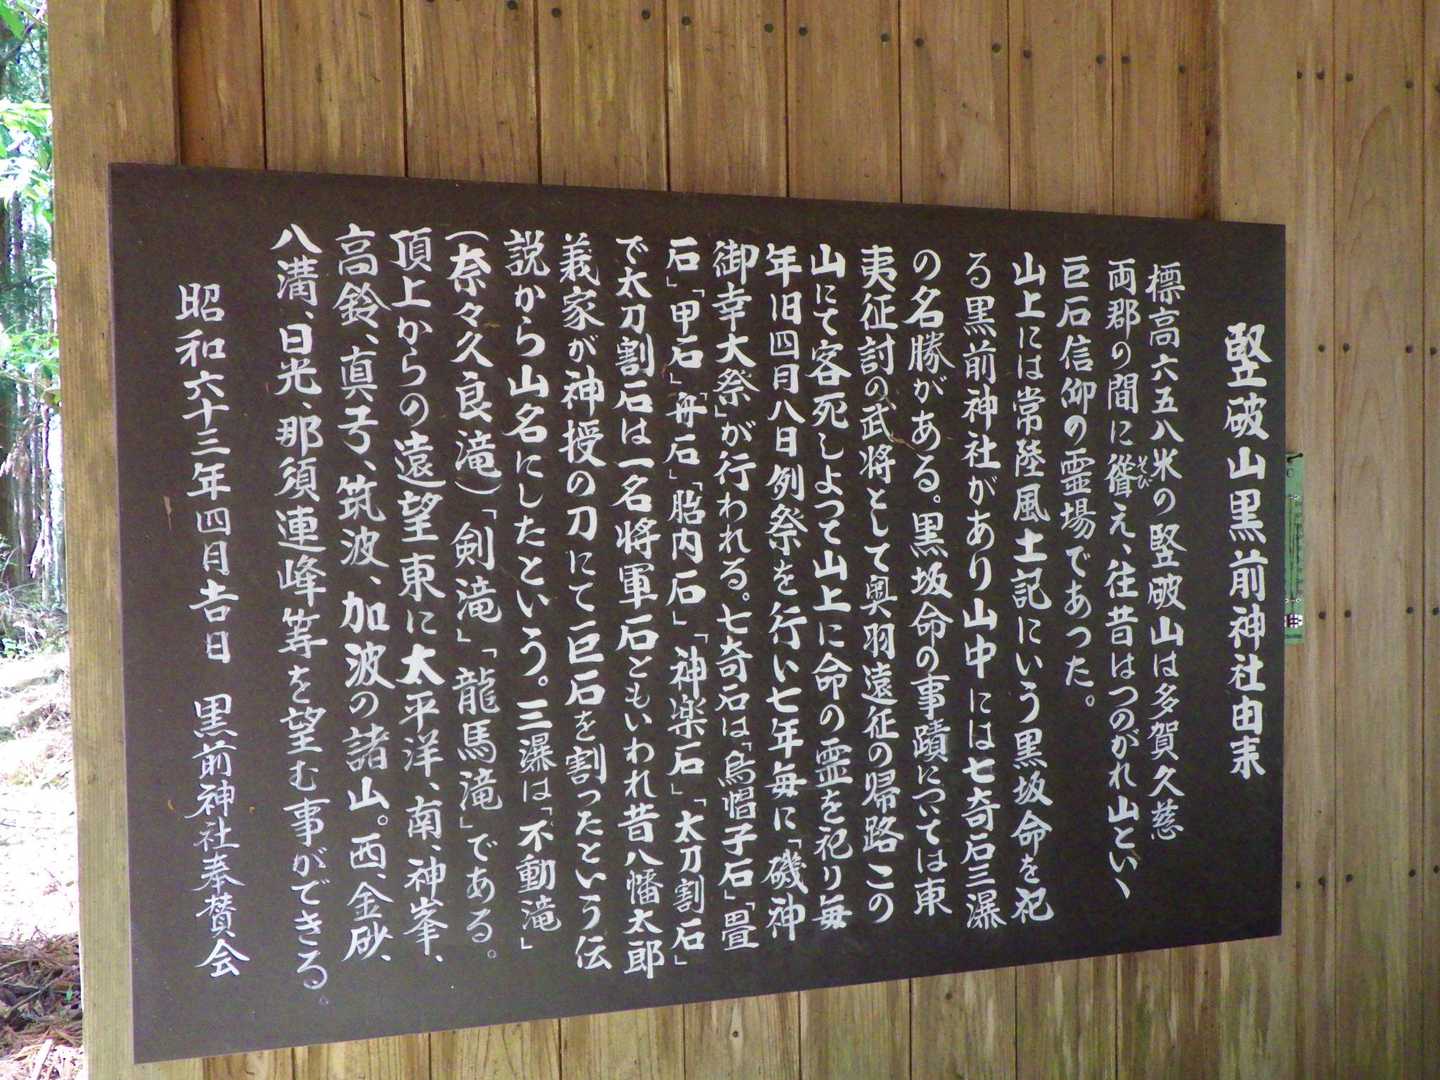 竪破山黒前神社由来
標高六五八米の竪破山は多賀久慈
両郡の間に聳え、往昔はつのがれ山といゝ
そび
巨石信仰の霊場であった。
山上には常陸風土記にいう黒坂命を祀
る黒前神社があり山中には七奇石三瀑
の名勝がある。黒坂命の事蹟については東
夷征討の武将として奥羽遠征の帰路この
山にて客死しよって山上に命の霊を祀り毎
年旧四月八日例祭を行い七年毎に「磯神
御幸大祭」が行われる。七奇石は「烏帽子石」「畳
石」「甲石」「舟石」「胎内石」「神楽石」「太刀割石」
で太刀割石は一名将軍石ともいわれ昔八幡太郎
義家が神授の刀にて巨石を割ったという伝
説から山名にしたという。三瀑は「不動滝」
(奈々久良滝)「剣滝」「龍馬滝」である。
頂上からの遠望東に太平洋、南、神峯、
高鈴、真弓、筑波、加波の諸山。西、金砂、
八溝、日光、那須連峰等を望む事ができる。
昭和六十三年四月吉日 黒前神社奉賛会